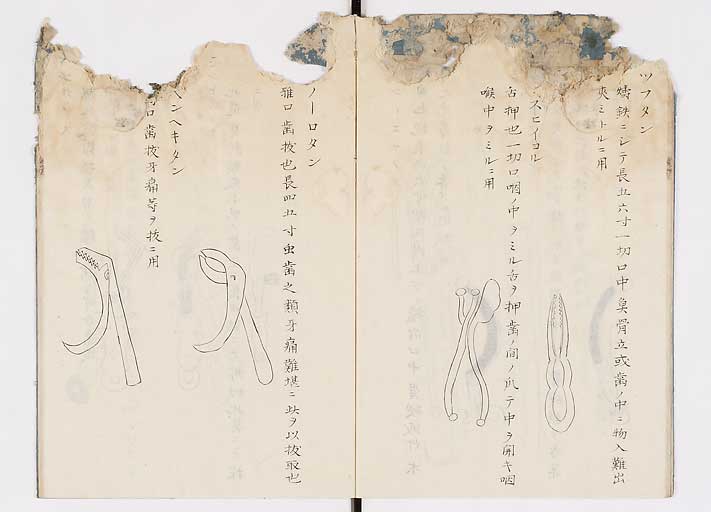 ツフタン
鑄鉄ニシテ長五六寸一切口中臭骨立或歯ノ中ニ物入難出
夾ミトルニ用
スヒイコル
舌押也一切口咽ノ中ヲミル舌ヲ押歯ノ間ノ爪テ中ヲ開キ咽
喉中ヲミルニ用
ノーロタン
雅口歯抜也長四五寸虫歯之類牙痛難堪ニ此ヲ以抜取也
ンヘキタン
口歯抜牙痛等ヲ抜ニ用